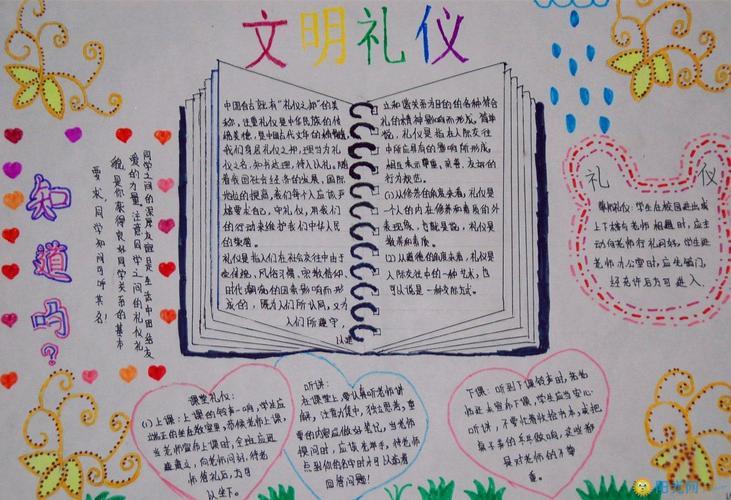 文明礼仪
中国自古就有“礼仪之邦”的美
称,注重礼仪是中华民族的传
统美德,是中国古代文年的精髓。
我们身居礼仪之邦,理当为礼
仪之名,知书达理,待人以礼。随
着我国社会经济的发展,国际
地位的提高,我们每个人应该严
格要求自己,守礼仪,用我们
的行动来维护我们中华人民
的荣誉。
礼仪是指人们在社会交往中由于
受传统,风俗习惯,宗教信仰,
时代潮流的因素影响而形
成的,既为人们所认同,又为
人们所遵守,
以建
立和谐关系为目的的各种符合
礼的精神
说,礼仪是指在人际交往
中所应具有的
相互表示尊重,亲善,友好的
行为规范。
(1)从修养的角度来看,礼仪是
一个人的内在修养和素质的外
在表现。也就是说,礼仪是
教养和素质。
(2)从道德的角度来看,礼仪是
人际交往中的一种艺术,也
可以说是一种交际方式。
知道吗?
同学之间的深厚友谊是生活中团结友
爱的力量。注意同学之间的礼仪礼
貌是你获得良好同学关系的基本
要求,同学如间可呼其名!
礼仪
尊师礼仪:学生在校园进出或
上下楼与老师相遇时,应主
动向老师行礼问好。学生进
老师办公室时,应先敲门,
经允许后方可进入。
课堂礼仪:
(1)上课:上课的铃声一响,学生应
端正的坐在教室里,恭候老师上课,
当老师宣布上课时,全班应迅
速肃立,向老师问好,待老
师答礼后,方可
以坐下。
听讲:
在课堂上,要认真听老师讲
解,注意力集中,独立思考,重
要的内容应做好笔记,当老师
提问时,应该先举手,待老师
点到你的名字时才可以站着
回答问题!
下课:听到下课铃声时,若老
师还未宣布下课,学生应当安心
听讲,不要忙着收拾书本,或把
桌子弄的乒乓做响,这些都
是对老师的不尊
重。